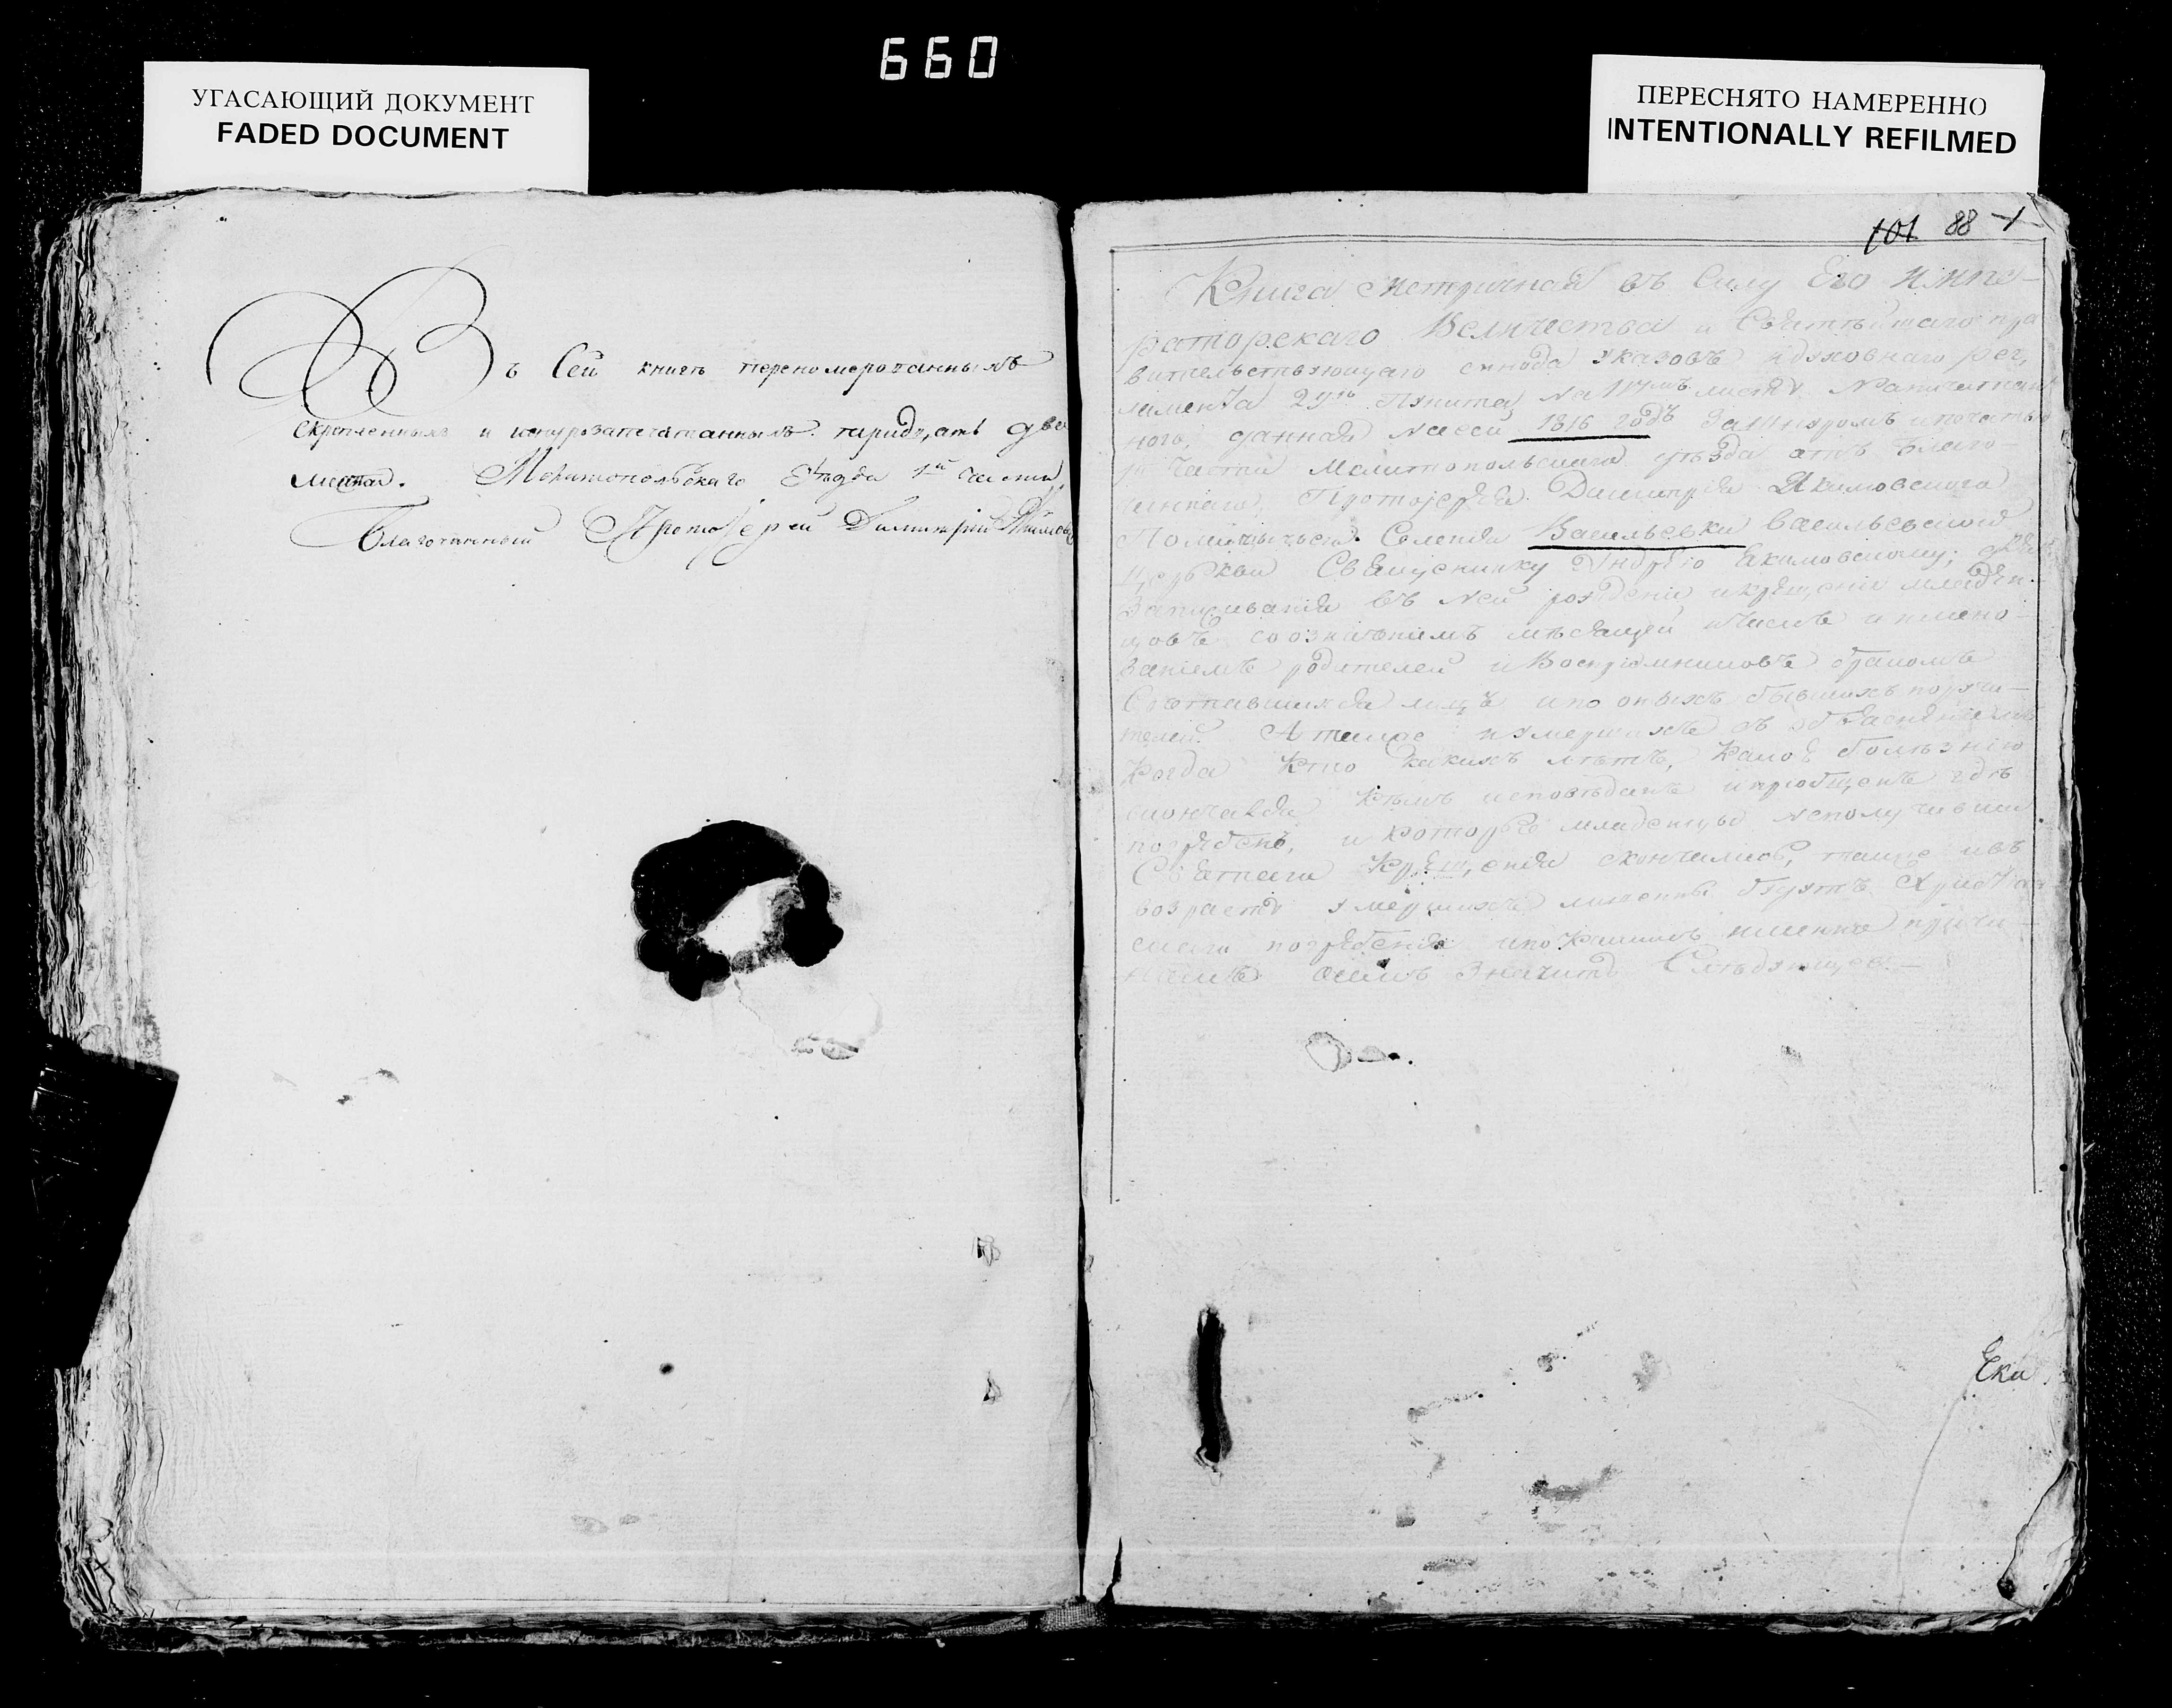 660
УГАСАЮЩИЙ ДОКУМЕНТ
FADED DOCUMENT
ПЕРЕСНЯТО НАМЕРЕННО
INTENTIONALLY REFILMED
Въ Сей книгѣ перенумерованныхъ
скрепленныхъ и шнурозапечатанныхъ тридцать два
листа. Мелитопольскаго Уѣзда 1й части
Благочинный Протоіерей Димитрий
101 88
Книга метричная въ Силу Его Импе-
раторскаго Величества и Святѣйшаго пра
вительствующаго синода указовъ и духовнаго рег,
ламента 29го Пункта на листу Напечатан
ного, данная на сей 1816 годъ За шнуромъ и печатью
1й Части Мелитопольского уѣзда отъ Благо-
чиннаго, Протоіерея Димитрия Якимовского
Селения Васильевки Васильевской
Церькви Священнику Андрею Якимовскому; для
Записывания въ ней рождении и крещении младен-
цовъ со означениемъ мѣсяцей и числъ и имено-
ваніемъ родителей и Восприемниковъ бракомъ
Сочетавшихся лицъ и по оныхъ бывшихъ поручи-
телей. А также и умершихъ съ объясненіемъ
Когда Кто какихъ лѣтъ, Какою болѣзнію
скончался Кѣмъ исповѣданъ и приобщенъ гдѣ
погребенъ, и которые младенцы неполучивши
Святаго Крещения скончались, также и въ
возрастѣ умершихъ лишены будутъ Христиан
скаго погребения и по какимъ именно причи-
намъ Значитъ Слѣдующее.
Ека